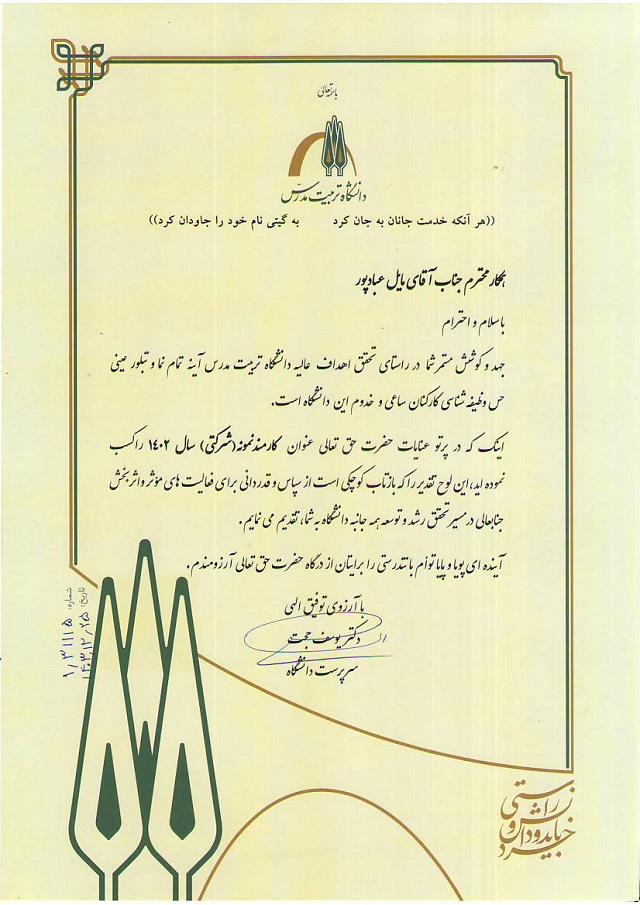 باسمه‌تعالی
دانشگاه تربیت مدرس
((هر آنکه خدمت جانان به جان کرد به گیتی نام خود را جاودان کرد))
همکار محترم جناب آقای مایل عبادپور
با سلام و احترام
جهد و کوشش مستمر شما در راستای تحقق اهداف عالیه دانشگاه تربیت مدرس آینه تمام نما و تبلور عینی
حس وظیفه شناسی کارکنان ساعی و خدوم این دانشگاه است.
اینک که در پرتو عنایات حضرت حق تعالی عنوان کارمند نمونه (شرکتی) سال ۱۴۰۲ را کسب
نموده اید، این لوح تقدیر را که بازتاب کوچکی است از سپاس و قدردانی برای فعالیت های مؤثر و اثربخش
جنابعالی در مسیر تحقق رشد و توسعه همه جانبه دانشگاه به شما، تقدیم می نمایم.
آینده ای پویا و پایا توأم با تندرستی را برایتان از درگاه حضرت حق تعالی آرزومندم.
با آرزوی توفیق الهی
دکتر یوسف حجت
سرپرست دانشگاه
شماره:
تاریخ: